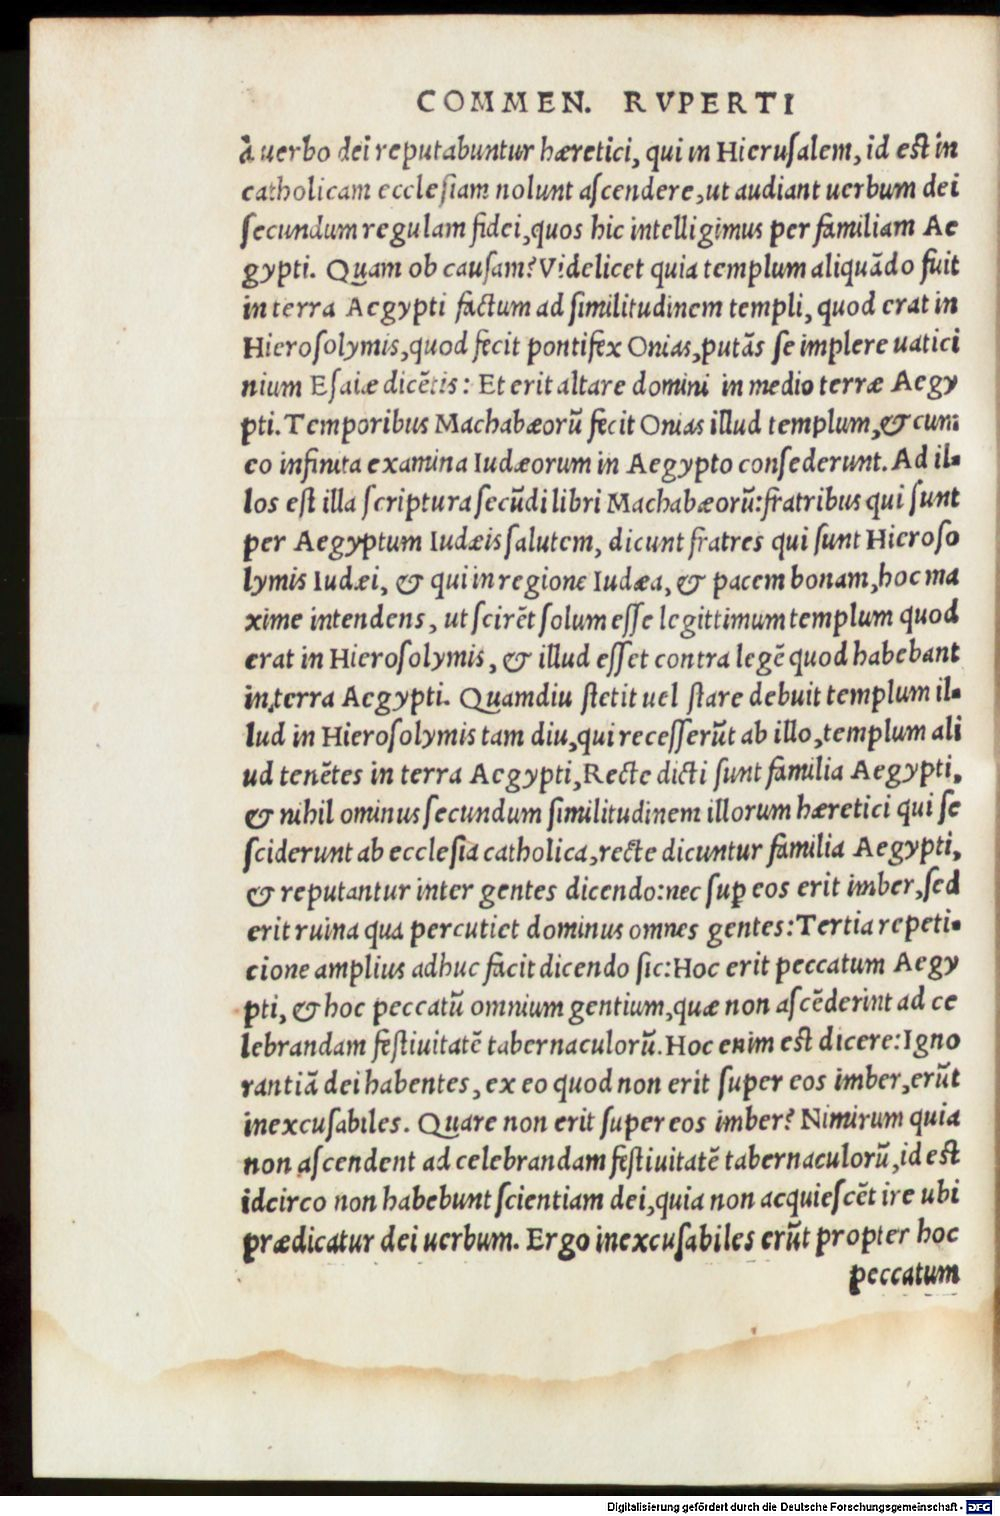 COMMEN. RVPERTI
à uerbo dei reputabuntur hæretici, qui in Hierusalem, id est in
catholicam ecclesiam nolunt ascendere, ut audiant uerbum dei
secundum regulam fidei, quos hic intelligimus per familiam Ae
gypti. Quam ob causam? Videlicet quia templum aliquãdo fuit
in terra Aegypti factum ad similitudinem templi, quod erat in
Hierosolymis, quod fecit pontifex Onias, putãs se implere uatici
nium Esaiæ dicẽtis: Et erit altare domini in medio terræ Aegy
pti. Temporibus Machabæorũ fecit Onias illud templum, & cum
eo infinita examina Iudæorum in Aegypto consederunt. Ad il-
los est illa scriptura secũdi libri Machabæorũ: fratribus qui sunt
per Aegyptum Iudæis salutem, dicunt fratres qui sunt Hieroso
lymis Iudæi, & qui in regione Iudæa, & pacem bonam, hoc ma
xime intendens, ut scirẽt solum esse legittimum templum quod
erat in Hierosolymis, & illud esset contra legẽ quod habebant
in terra Aegypti. Quamdiu stetit uel stare debuit templum il-
lud in Hierosolymis tam diu, qui recesserũt ab illo, templum ali
ud tenẽtes in terra Aegypti, Recte dicti sunt familia Aegypti,
& nihil ominus secundum similitudinem illorum hæretici qui se
sciderunt ab ecclesia catholica, recte dicuntur familia Aegypti,
& reputantur inter gentes dicendo: nec suꝑ eos erit imber, sed
erit ruina qua percutiet dominus omnes gentes: Tertia repeti-
cione amplius adhuc facit dicendo sic: Hoc erit peccatum Aegy
pti, & hoc peccatũ omnium gentium, quæ non ascẽderint ad ce
lebrandam festiuitatẽ tabernaculorũ. Hoc enim est dicere: Igno
rantiã dei habentes, ex eo quod non erit super eos imber, erũt
inexcusabiles. Quare non erit super eos imber? Nimirum quia
non ascendent ad celebrandam festiuitatẽ tabernaculorũ, id est
idcirco non habebunt scientiam dei, quia non acquiescẽt ire ubi
prædicatur dei uerbum. Ergo inexcusabiles erũt propter hoc
peccatum
Digitalisierung gefördert durch die Deutsche Forschungsgemeinschaft - DFG